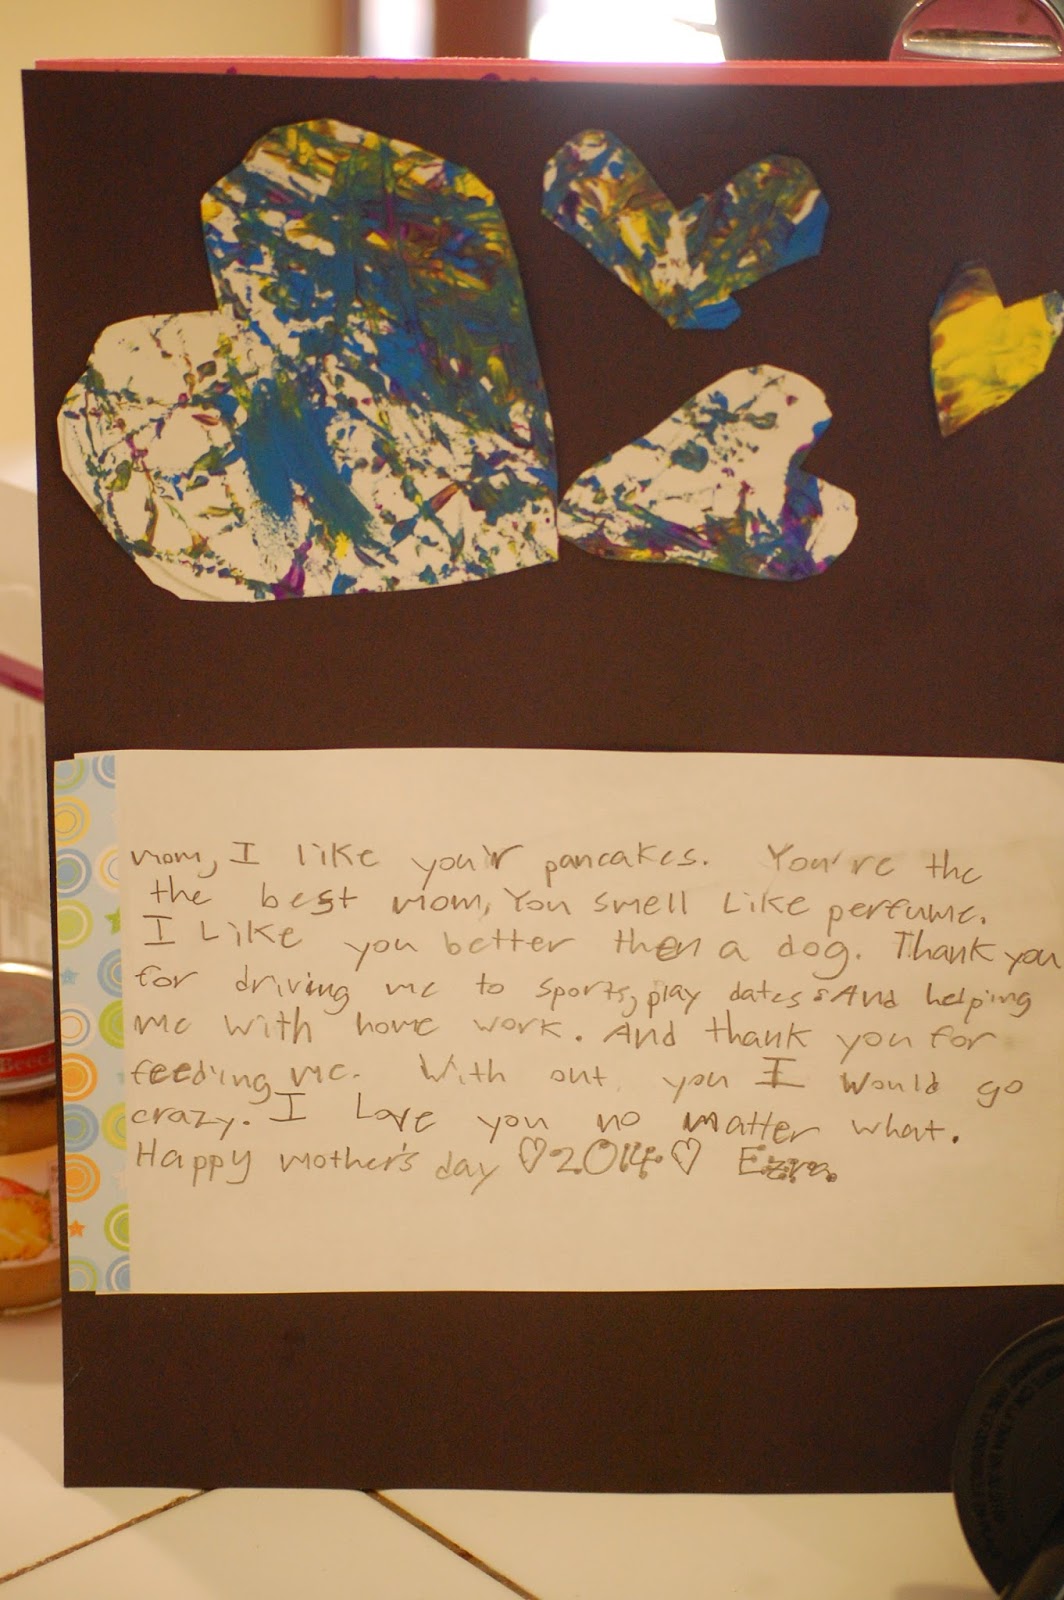 mom, I like you'r pancakes. You're the
the best mom, You smell Like perfume.
I Like you better then a dog. Thank you
for driving me to sports, play dates And helping
me with home work. And thank you for
feeding me. With out you I would go
crazy. I Love you no matter what.
Happy mother's day ♡2014♡ Ezra